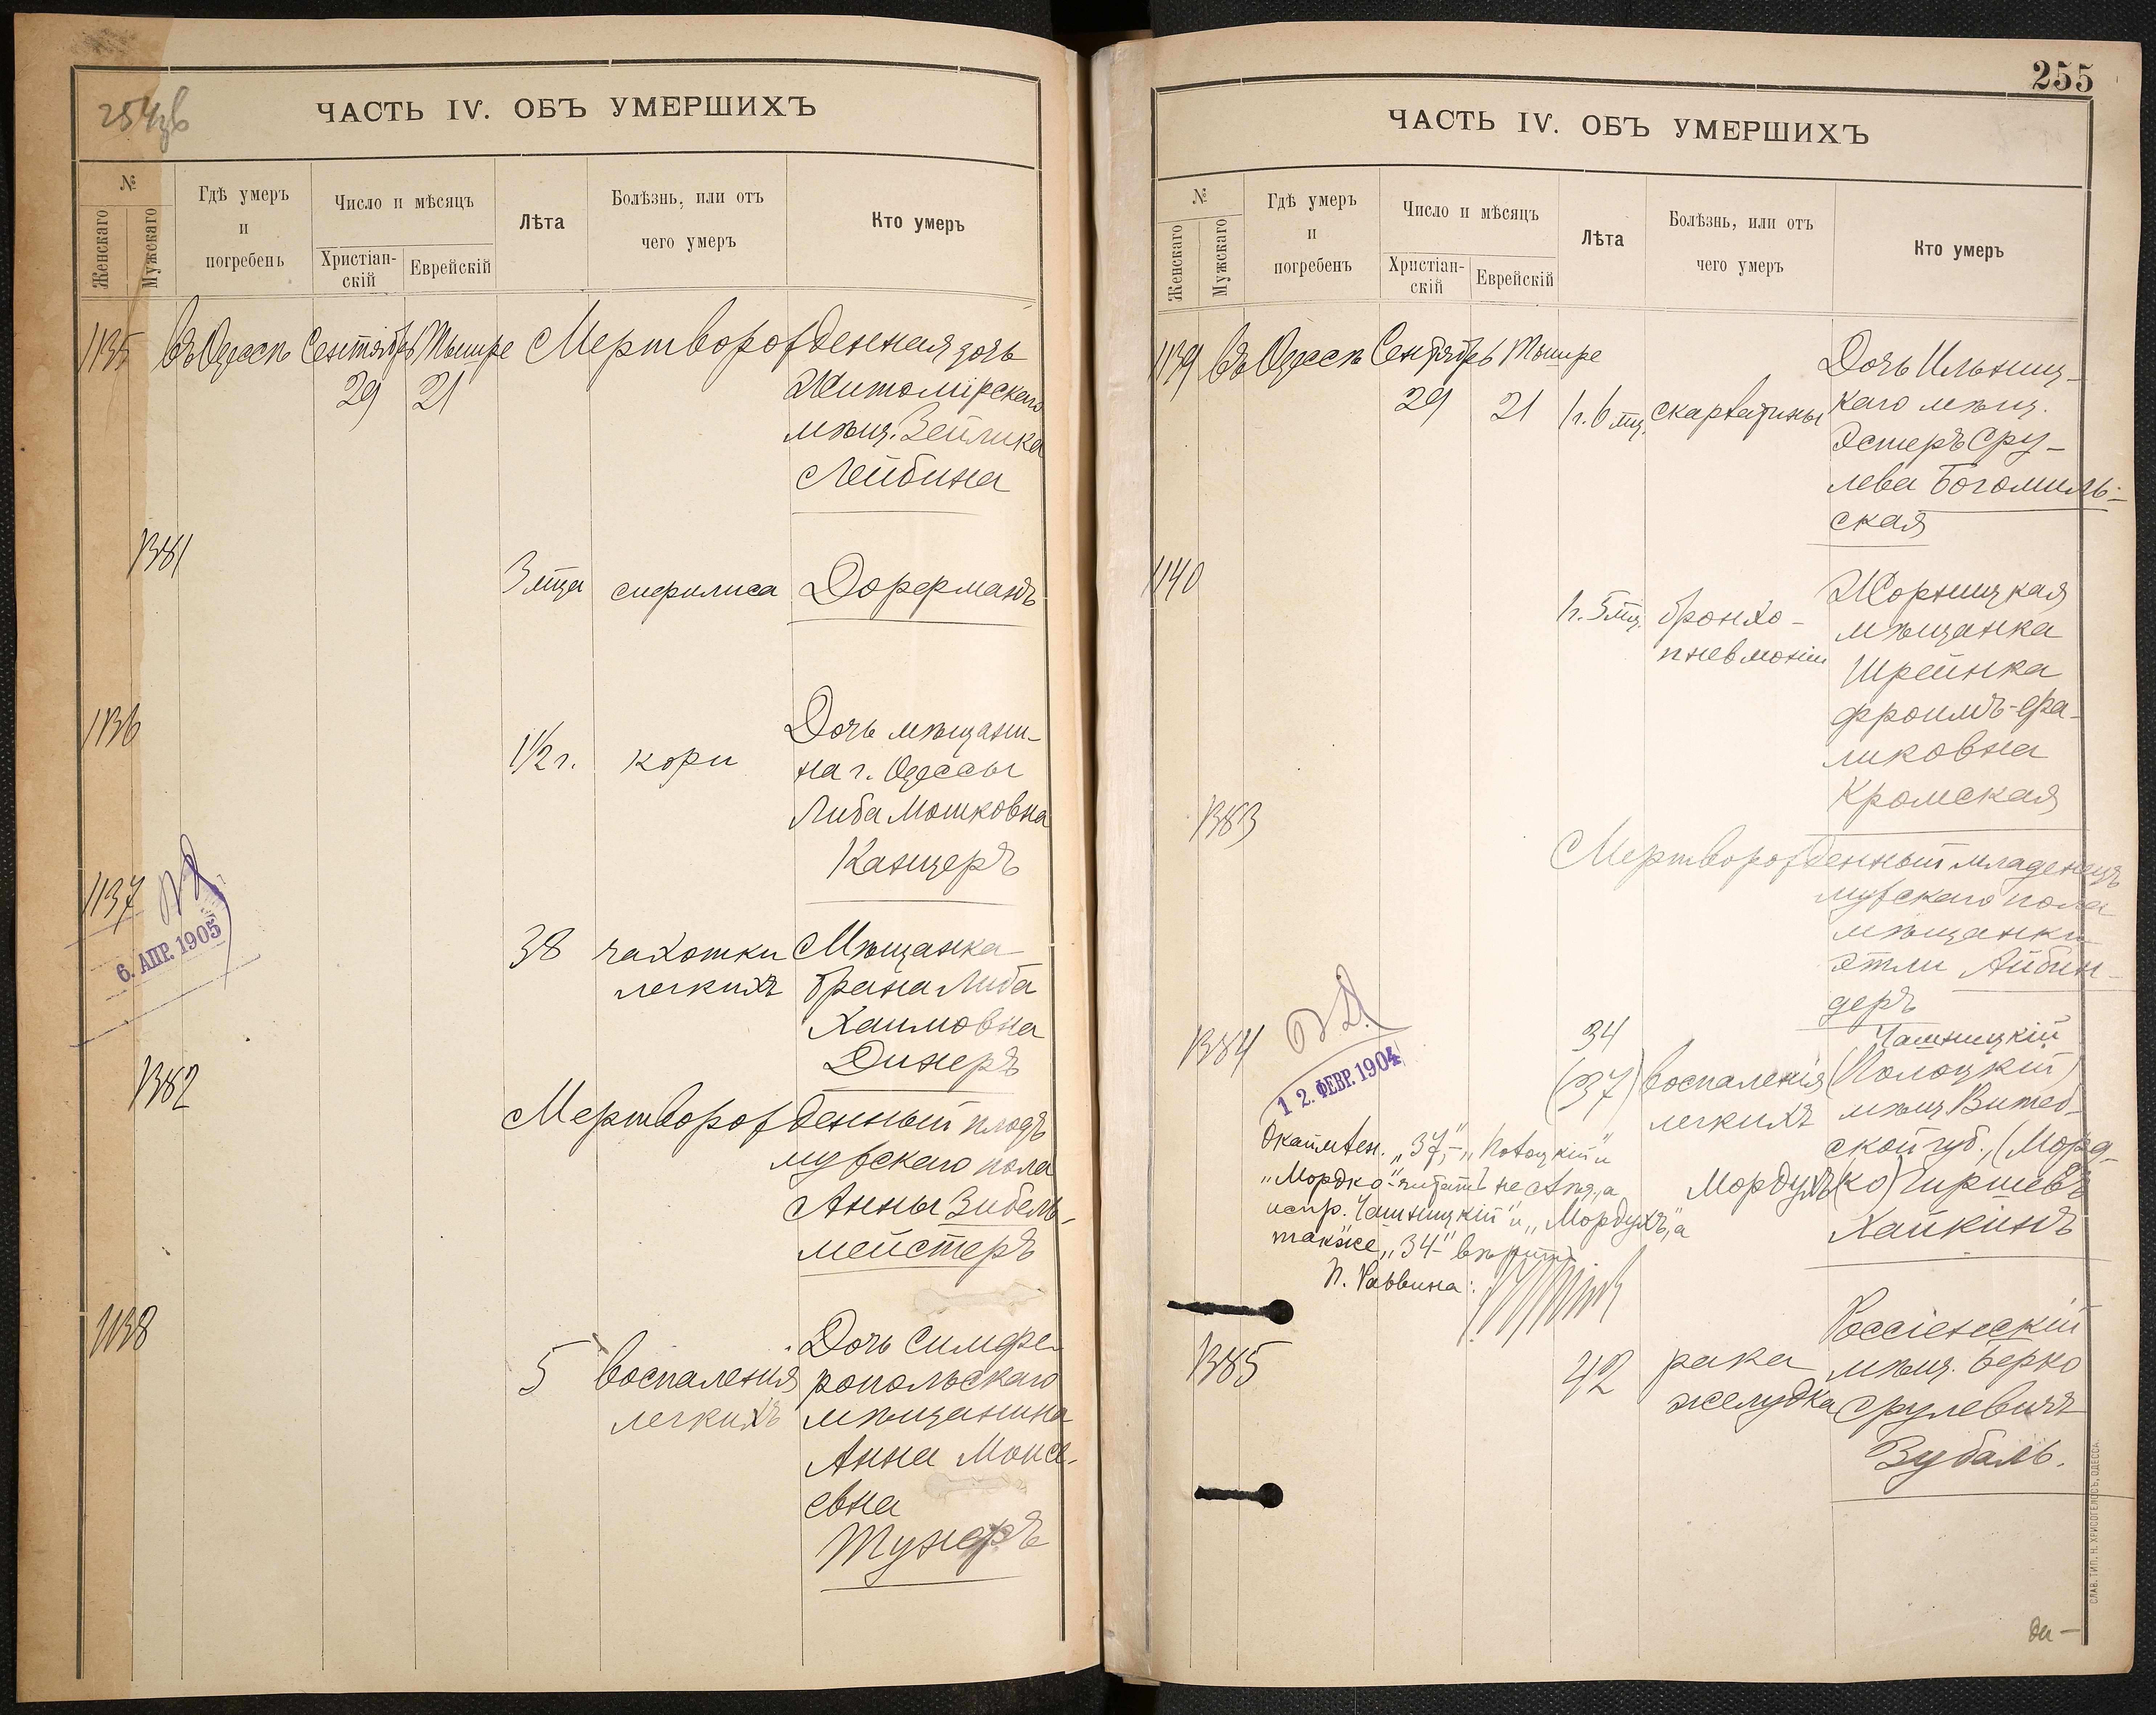 254об
ЧАСТЬ IV. ОБЪ УМЕРШИХЪ
№
Женскаго
Мужскаго
Гдѣ умеръ
и
погребенъ
Число и мѣсяцъ
Христіан-
скій
Еврейскій
Лѣта
Болѣзнь, или отъ
чего умеръ
Кто умеръ
1135 въ Одессѣ Сентябрь Тишре Мертворожденная дочь
29 21 Житомірскаго
мѣщ. Зейлика
Лейбина
1381
3 мца сифилиса Дорфманъ
1136
Дочь мѣщани-
1½ г. кори на г. Одессы
Либа Мошковна
Канцеръ
1137
6. АПР. 1905
38 чахотки Мѣщанка
легкихъ Брана Либа
Хаимовна
Динеръ
1382
Мертворожденный плодъ
мужскаго пола
Анны Зибель-
мейстеръ
1138
Дочь Симфе-
5 воспаленія ропольскаго
легкихъ мѣщанина
Анна Моисе-
евна
Тунеръ
255
ЧАСТЬ IV. ОБЪ УМЕРШИХЪ
№
Женскаго
Мужскаго
Гдѣ умеръ
и
погребенъ
Число и мѣсяцъ
Христіан-
скій
Еврейскій
Лѣта
Болѣзнь, или отъ
чего умеръ
Кто умеръ
1139 въ Одессѣ Сентябрь Тишре Дочь Ильниц-
29 21 1 г. 6 мц. скарлатины каго мѣщ.
Эстеръ Сру-
лева Богомиль-
ская
1140
Жорницкая
1 г. 5 мц. бронхо- мѣщанка
пневмоніи Шрейнка
Фроимъ-Фа-
ликовна
Кромская
1383
Мертворожденный младенецъ
мужскаго пола
мѣщанки
Этли Айбин-
деръ
1384
12. ФЕВР. 1904
34 Чашницкій
(37) воспаленія (Полоцкій)
легкихъ мѣщ. Витеб-
ской губ., (Морд-
Мордухъ (ко) Гиршевъ
Хайкинъ
„37„- „Полоцкій" и
„Мордко"- читать не слѣд., а
испр. „Чашницкій" и „Мордухъ", а
также „34" вѣрить
П. Раввина:
1385
Россіенскій
42 рака мѣщ. Берко
желудка Срулевичъ
Зубаль.
СЛАВ. ТИП. Н. ХРИСОГЕЛОСЪ, ОДЕССА.